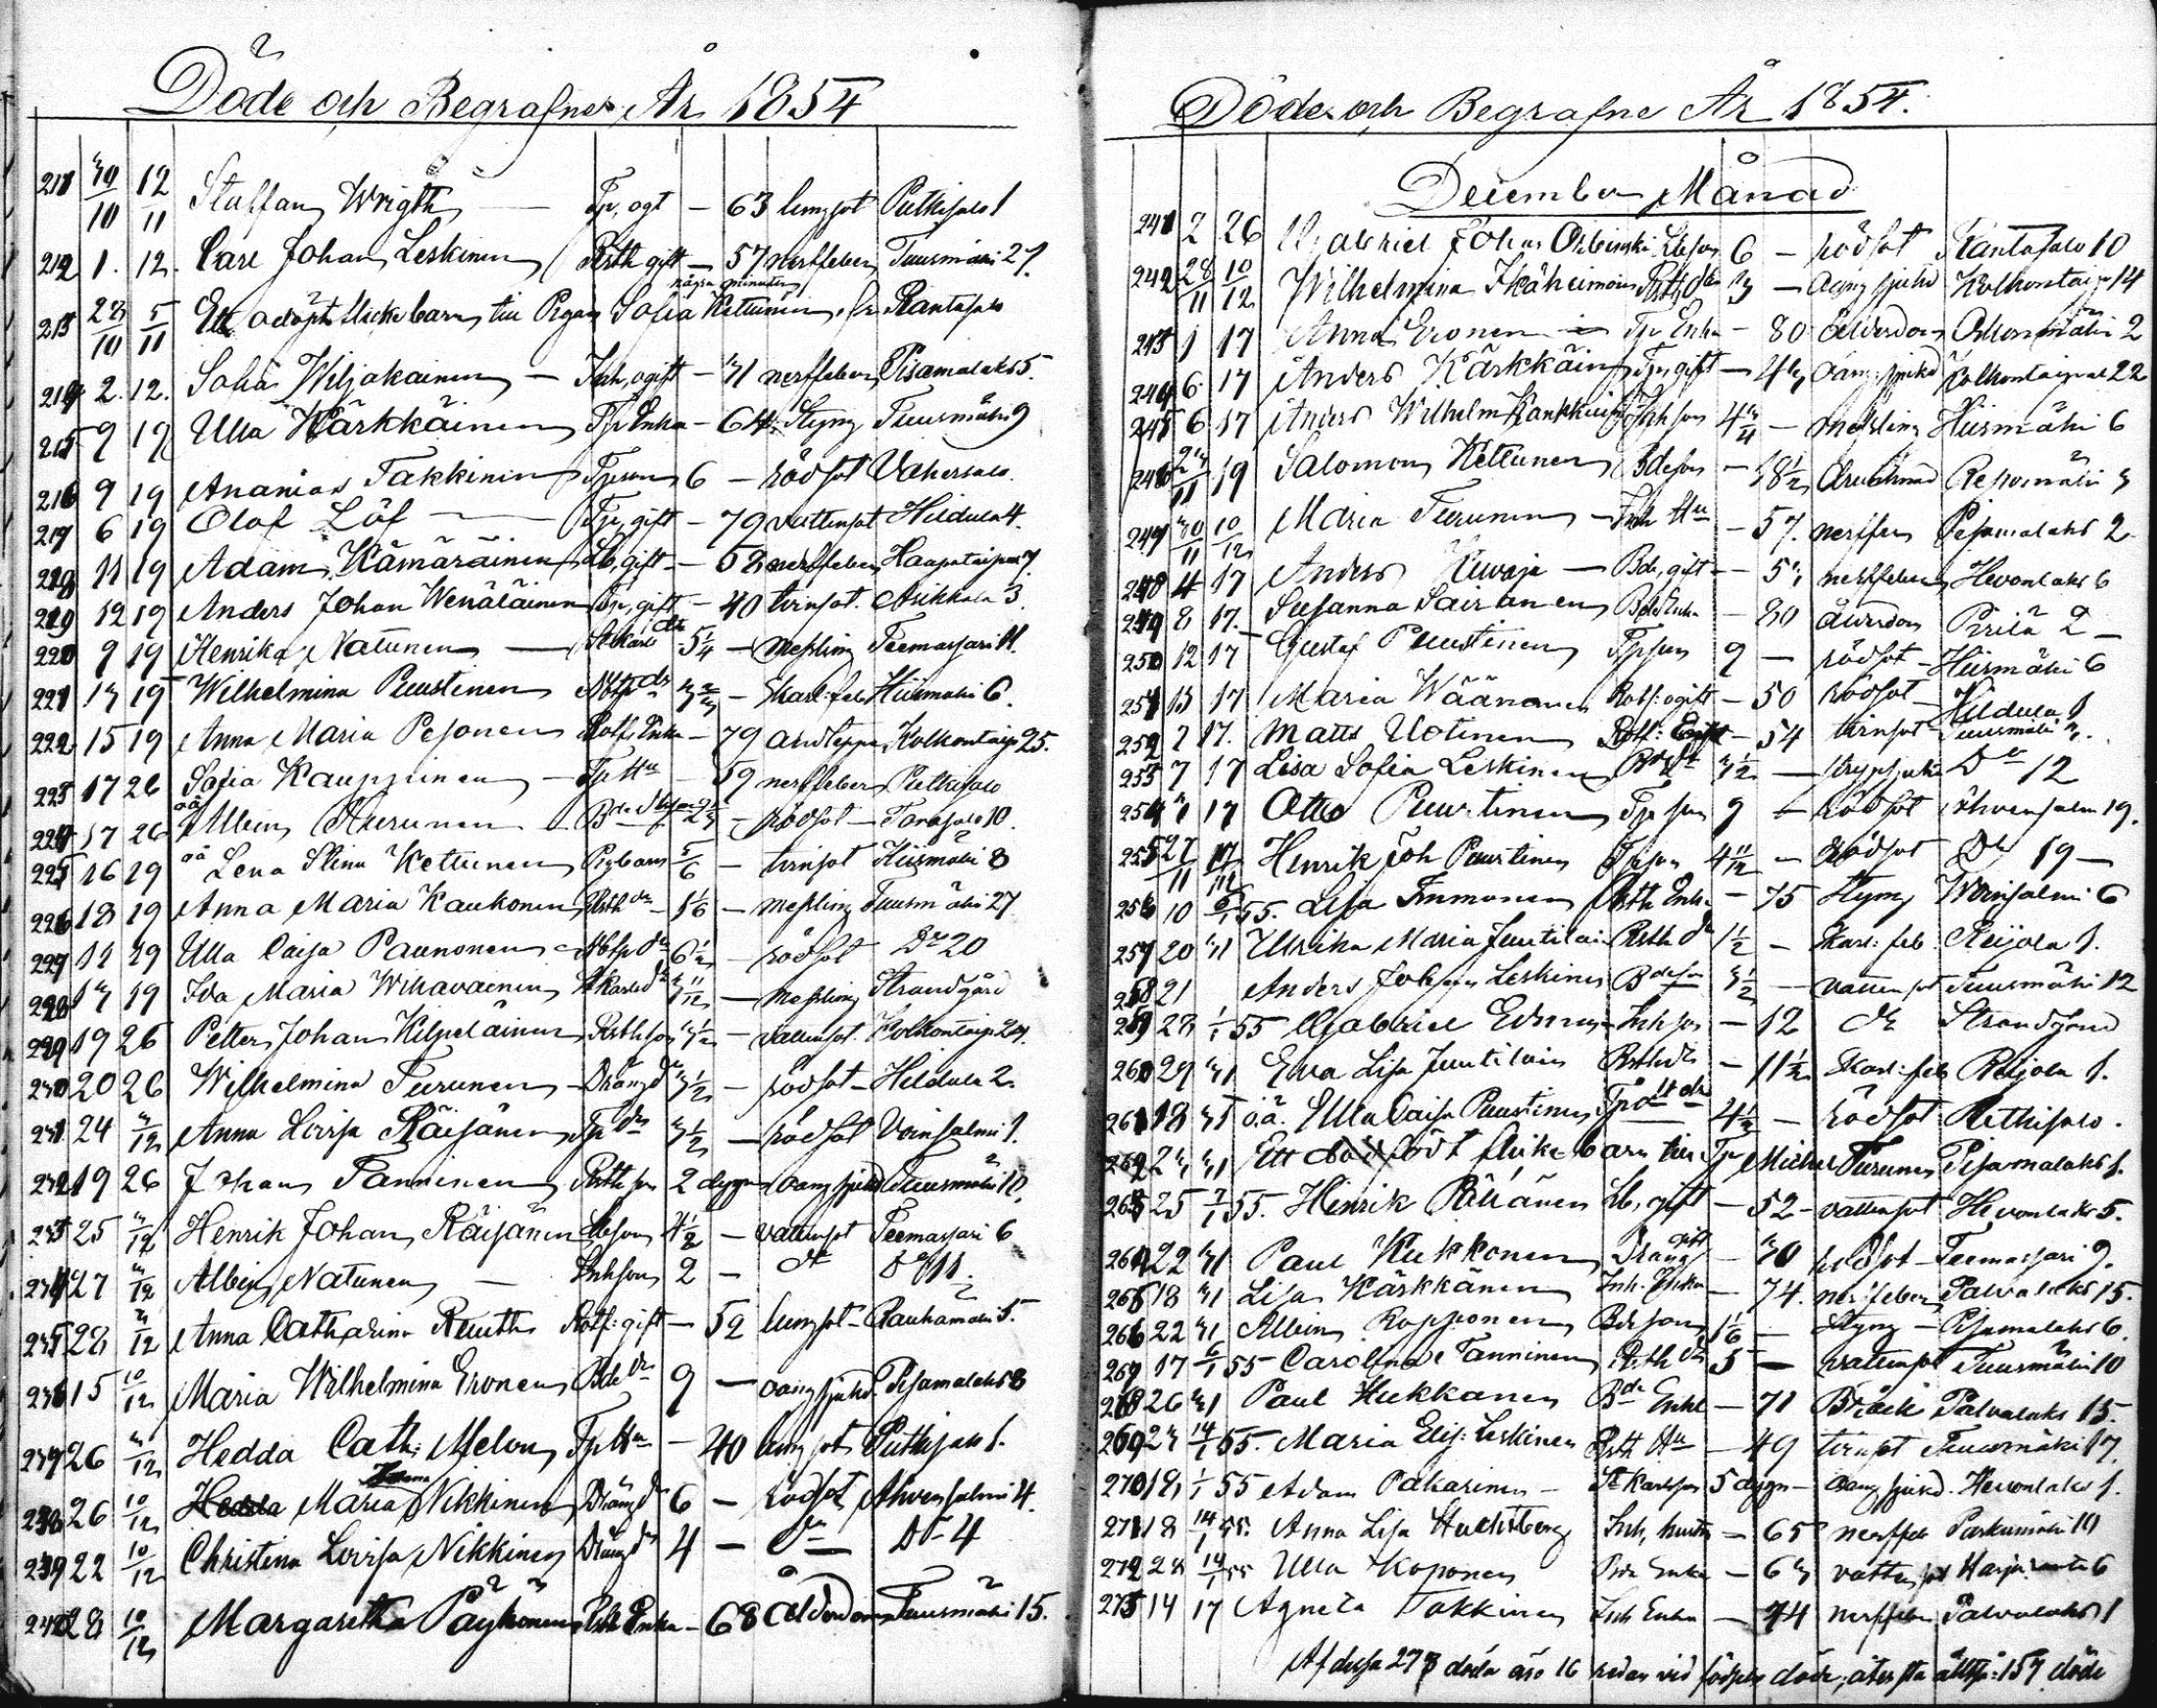 Döde och Begrafne År 1854
211 30/10 12/11 Staffan Wrigth Tp, ogt — 63 lungsot Putkisalo 1
212 1. 12. Carl Johan Leskinen Rsth gift — 57 nerffeber Tuusmäki 27.
några minuter
213 28/10 5/11 Ett odöpt flickebarn till Pigan Sofia Kettunen, fr. Rantasalo
214 2. 12. Sofia Wiljakainen — Inh, ogift — 31 nerffeber Pisamalaks 5.
215 9 19 Ulla Kärkkäinen Tp Enka — 64 Styng Tuusmäki 9
216 9 19 Ananias Takkinen Tpson 6 — rödsot Vahersalo
217 6 19 Olof Löf — Tp, gift — 79 vattensot Hildula 4.
218 11 19 Adam Kämäräinen Lb, gift — 58 nerffeber Haapataipal 7
219 12 19 Anders Johan Wenäläinen Tp, gift — 40 tvinsot Asikkala 3.
220 9 19 Henrika Natunen — St Karls dtr 5 1/4 — Messling Teemassari 11.
221 13 19 Wilhelmina Puustinen dr — Skarl. feb Hiismäki 6.
222 15 19 Anna Maria Pesonen Rotf. Enka — 79 andteppa Kolkontaip 25.
223 17 26 Sofia Kauppinen — Tp Hu — 59 nerffeber Putkisalo
224 17 26 oä Albin Hurunen — rödsot — Tarasalo 10.
225 16 19 oä Lena Stina Kettunen Pigbarn 5/6 — tvinsot Hiismäki 8
226 18 19 Anna Maria Kaukonen Rsth dr — 1 1/6 — messling Tuusmäki 27
227 11 19 Ulla Caisa Paunonen dr 6 1/2 — rödsot Do 20
228 13 19 Ida Maria Wihavainen St Karls dr 11/12 — messling Strandgård
229 19 26 Petter Johan Kilpeläinen Rsth son 3 1/2 — vattensot Kolkontaip 24.
230 20 26 Wilhelmina Turunen Dräng dr 3 1/2 — rödsot — Hildula 2.
231 24 3/12 Anna Lovisa Räisänen Tp dr 3 1/2 — rödsot Voinsalmi 1.
232 19 26 Johan Tanninen Rsth son 2 dygn oäng sjukd Tuusmäki 10.
233 25 3/12 Henrik Johan Räisänen Lbson 4 1/2 — vattensot Teemassari 6
234 27 3/12 Albin Natunen — Inhson 2 — do Do 11.
235 28 3/12 Anna Catharina Reuth Rotf: gift — 52 lungsot — Rauhamäki 5.
236 15 10/12 Maria Wilhelmina Eronen Bde dr 9 — oäng sjukd. Pisamalaks 8
237 26 3/12 Hedda Cath: Melon Tp Hu — 40 lungsot Putkisalo 1.
238 26 10/12 Hedda Maria Johanna Nikkinen Dräng dr 6 — rödsot Ahvensalmi 4.
239 22 10/12 Christina Lovisa Nikkinen Dräng dr 4 — do Do 4
240 28 10/12 Margaretha Päykönen Rsth Enka — 68 ålderdom Tuusmäki 15.
Döde och Begrafne År 1854.
December Månad
241 2 26 Gabriel Johan Lbson 6 — rödsot Rantasalo 10
242 28/11 10/12 Wilhelmina Ikäheimoin Rsth dr 3 — oäng sjukd Kolkontaip 14
243 1 17 Anna Eronen Tp Enka — 80 ålderdom Oskonmäki 2
244 6 17 Anders Kärkkäin Tp, gift — 43 oäng. sjukd Kolkontaipal 22
245 6 17 Anders Wilhelm Kärkkäin Inhson 4 3/4 — messling Hiismäki 6
246 23/11 19 Salomon Kettunen Bdeson — 18 1/2 Repomäki 3
247 30/11 10/12 Maria Turunen — Inh Hu — 57. nerffeb Pisamalaks 2
248 4 17 Anders Kuvaja — Bde, gift — 53 nerffeber Hevonlaks 6
249 8 17. Susanna Sairanen Bde Enka — 80 ålderdom Pirilä 2 —
250 12 17 Gustaf Puustinen Tpson 9 — rödsot — Hiismäki 6
251 13 17 Maria Wäänänen Rotf: ogift — 50 rödsot — Hildula 1
252 7 17. Matts Uotinen Rotf: Gift — 54 tvinsot — Tuusmäki 3.
253 7 17 Lisa Sofia Leskinen dr 3 1/2 — strypsjuka Do 12
254 3 17 Otto Puustinen Tpson 9 — rödsot Ahvensalmi 19.
255 27/11 17/12 Henrik Joh Puustinen Tpson 4 11/12 — Rödsot Do 19 —
256 10 6/1 55. Lisa Immonen Rsth Enka — 75 Styng Woinsalmi 6
257 20 31 Ulrika Maria Juutilain Rsth dr 1 1/2 — Skarl: feb. Reijola 1.
258 21 Anders Johan Leskinen Bdeson 3 1/2 — vattensot Tuusmäki 12
259 28 1/1 55 Gabriel Edman Inhson — 12 do Strandgård
260 29 31 Eva Lisa Juutilain Rsth dr — 11 1/2 Skarl: feb Reijola 1.
261 18 31 o.ä. Ulla Caisa Puustinen Tp dt dr 4 1/2 — rödsot. Putkisalo.
262 23 31 Ett dödfödt flickebarn till Tp Michel Turunen Pisamalaks 1.
263 25 7/1 55. Henrik Pöllänen Lb, gift — 52 — vattensot Hevonlaks 5.
264 22 31 Paul Kukkonen Dräng gift — 30 rödsot — Teemassari 9.
265 18 31 Lisa Kärkkänen Inh. Enka — 74. nerffeber Palvalaks 15.
266 22 31 Albin Ropponen Bdeson 1 1/6 — Styng — Pisamalaks 6.
267 17 6/1 55 Carolina Tanninen Rsth dr 5 — vattensot Tuusmäki 10
268 26 31 Paul Hukkanen Bde Enkl — 71 Bråck Palvalaks 15.
269 23 14/1 55. Maria Elis: Leskinen Rsth Hu — 49 tvinsot Tuusmäki 17.
270 18 1/1 55 Adam Pakarinen — St Karlson 5 dygn — oäng sjukd. Hevonlaks 1.
271 18 14/1 55. Anna Lisa Inh, hustru — 65 nerffeb Parkumäki 10
272 28 14/1 55 Ulla Koponen Bde Enka — 63 vattensot Harjuranta 6
273 14 17 Agneta Takkinen Inh Enka — 74 nerffeber Palvalaks 1
Af dessa 273 döda äro 16 redan vid födseln döde, återstå alltså: 157 döde